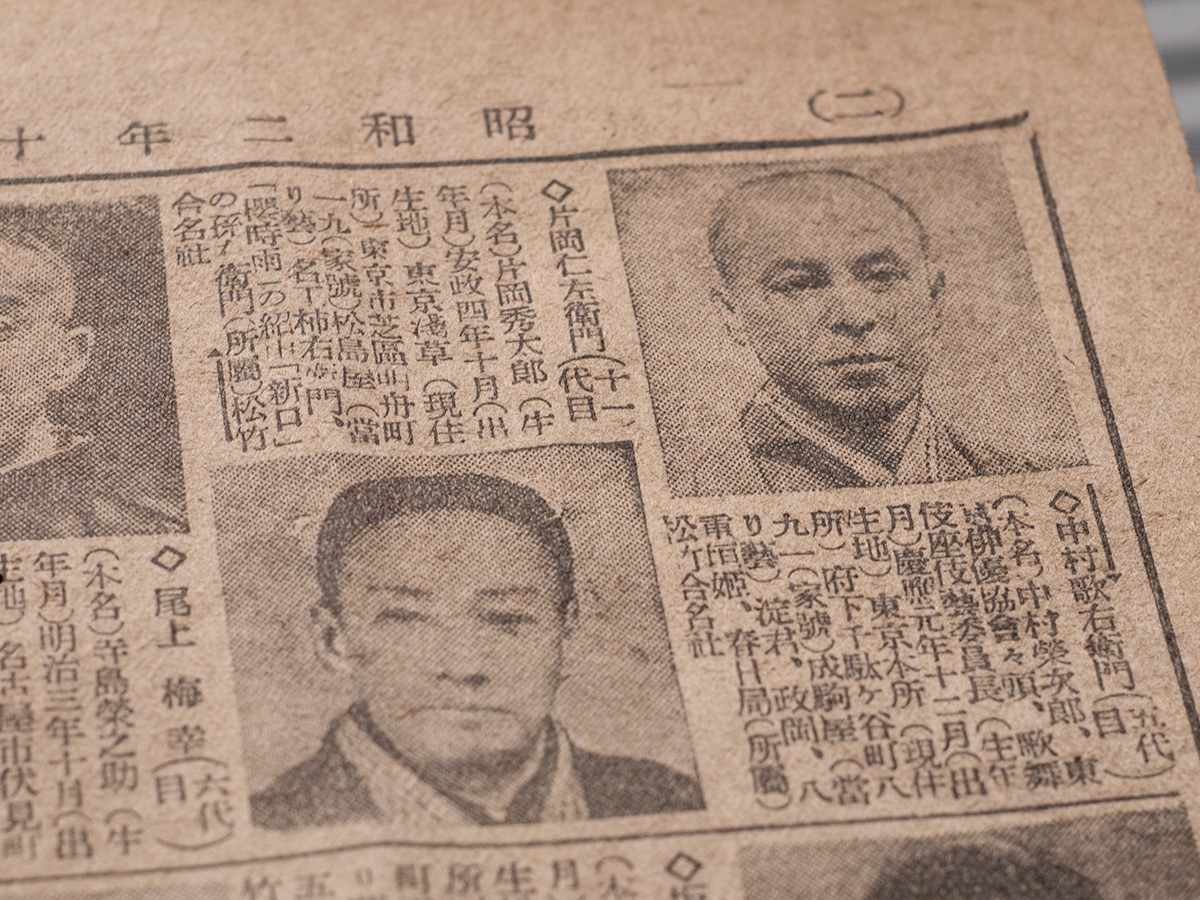 (二)
昭和二年十
◇中村歌右衛門(五代目)
(本名)中村榮次郎、東
俳優協會々頭、歌舞
伎座伎藝委員長 (生年
月)慶應元年十二月(出
生地) 東京本所 (現住
所) 府下千駄ケ谷町八
九一(家號)成駒屋(當
り藝) 淀君、政岡、八
重垣姫、春日局(所屬)
松竹合名社
◇片岡仁左衛門(十一代目)
(本名)片岡秀太郎 (生
年月)安政四年十月(出
生地) 東京淺草 (現住
所) 東京市芝區明舟町
一九(家號)松島屋(當
り藝) 名工柿右衛門、
「櫻時雨」の紹由「新口」
の孫右衛門(所屬)松竹
合名社
◇尾上梅幸(六代目)
(本名)寺島榮之助 (生
年月)明治三年十月(出
生地) 名古屋市伏見町
◇
(本
月
生
所
町
り
五
竹